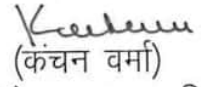 (कंचन वर्मा)